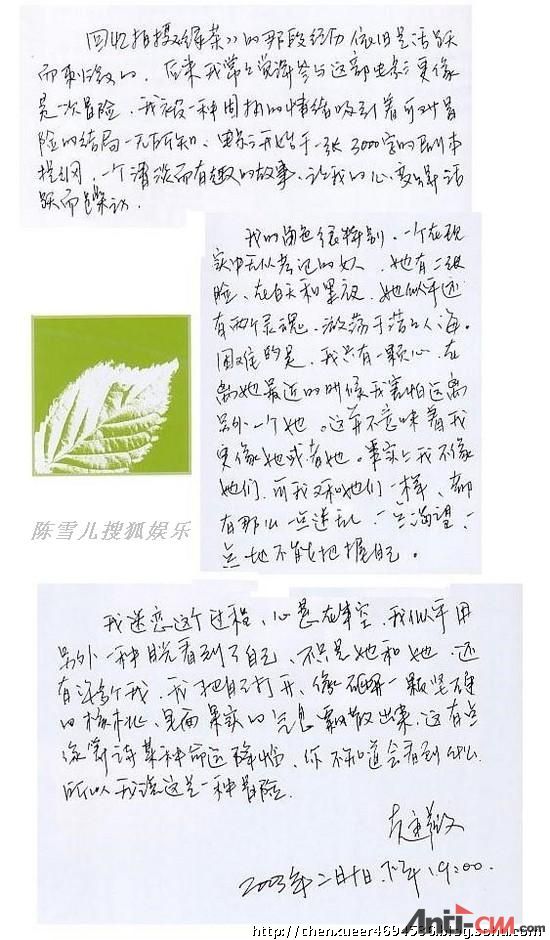 回忆拍摄《绿茶》的那段经历依旧是活跃
而刺激的。后来我常常觉得参与这部电影更像
是一次冒险，我被一种固执的情绪吸引着而对冒
险的结局一无所知。电影开始于一张3000字的剧本
提纲，一个清淡而有趣的故事，让我的心变得活
跃而躁动。
我的角色很特别，一个在现
实中无从考记的女人，她有二张
脸，在白天和黑夜，她似乎还
有两个灵魂，游荡于茫茫人海。
困难的是，我只有一颗心，在
离她最近的时候我害怕远离
另外一个她。这并不意味着我
更像她或者她。事实上我不像
她们，而我又和她们一样，都
有那么一点迷乱，一点渴望，一
点地不能把握自己。
陈雪儿搜狐娱乐
我迷恋这个过程，心悬在半空，我似乎用
另外一种目光看到了自己，不只是她和她，还
有许多个我，我把自己打开，像砸开一颗坚硬
的核桃，里面果实的气息飘散出来，这有点
像等待某种命运降临，你不知道会看到什么
所以我说这是一种冒险。
2003年二月十日 下午 19:00.
http://chenxueer4694586.blog.sohu.com/
Anti-CM.com